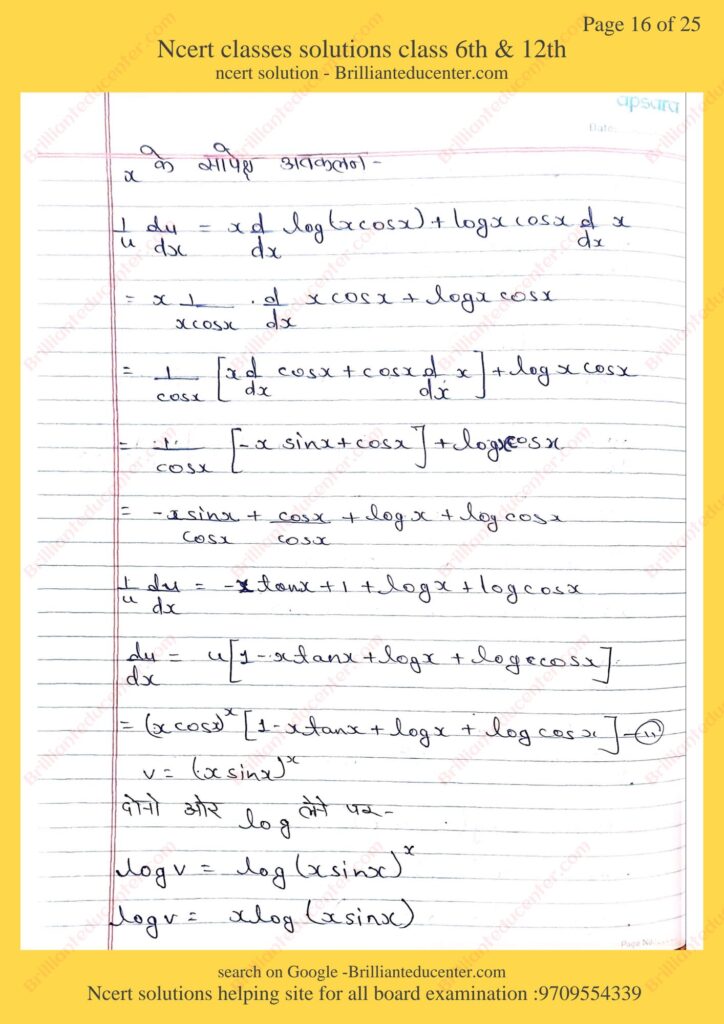 Page 16 of 25
Ncert classes solutions class 6th & 12th
ncert solution - Brillianteducenter.com
apsara
Date:
x के सापेक्ष अवकलन -
1/u du/dx = x d/dx log(x cosx) + logx cosx d/dx x
= x 1/xcosx . d/dx x cosx + logx cosx
= 1/cosx [x d/dx cosx + cosx d/dx x] + log x cosx
= 1/cosx [-x sinx + cosx] + logx cosx
= -x sinx/cosx + cosx/cosx + logx + log cosx
1/u du/dx = -x tanx + 1 + logx + log cosx
du/dx = u[1 - x tanx + logx + log cosx]
= (x cosx)^x [1 - x tanx + logx + log cosx] - (ii)
v = (x sinx)^x
दोनो ओर log लेने पर -
log v = log (x sinx)^x
log v = x log (x sinx)
Page No.
search on Google -Brillianteducenter.com
Ncert solutions helping site for all board examination :9709554339